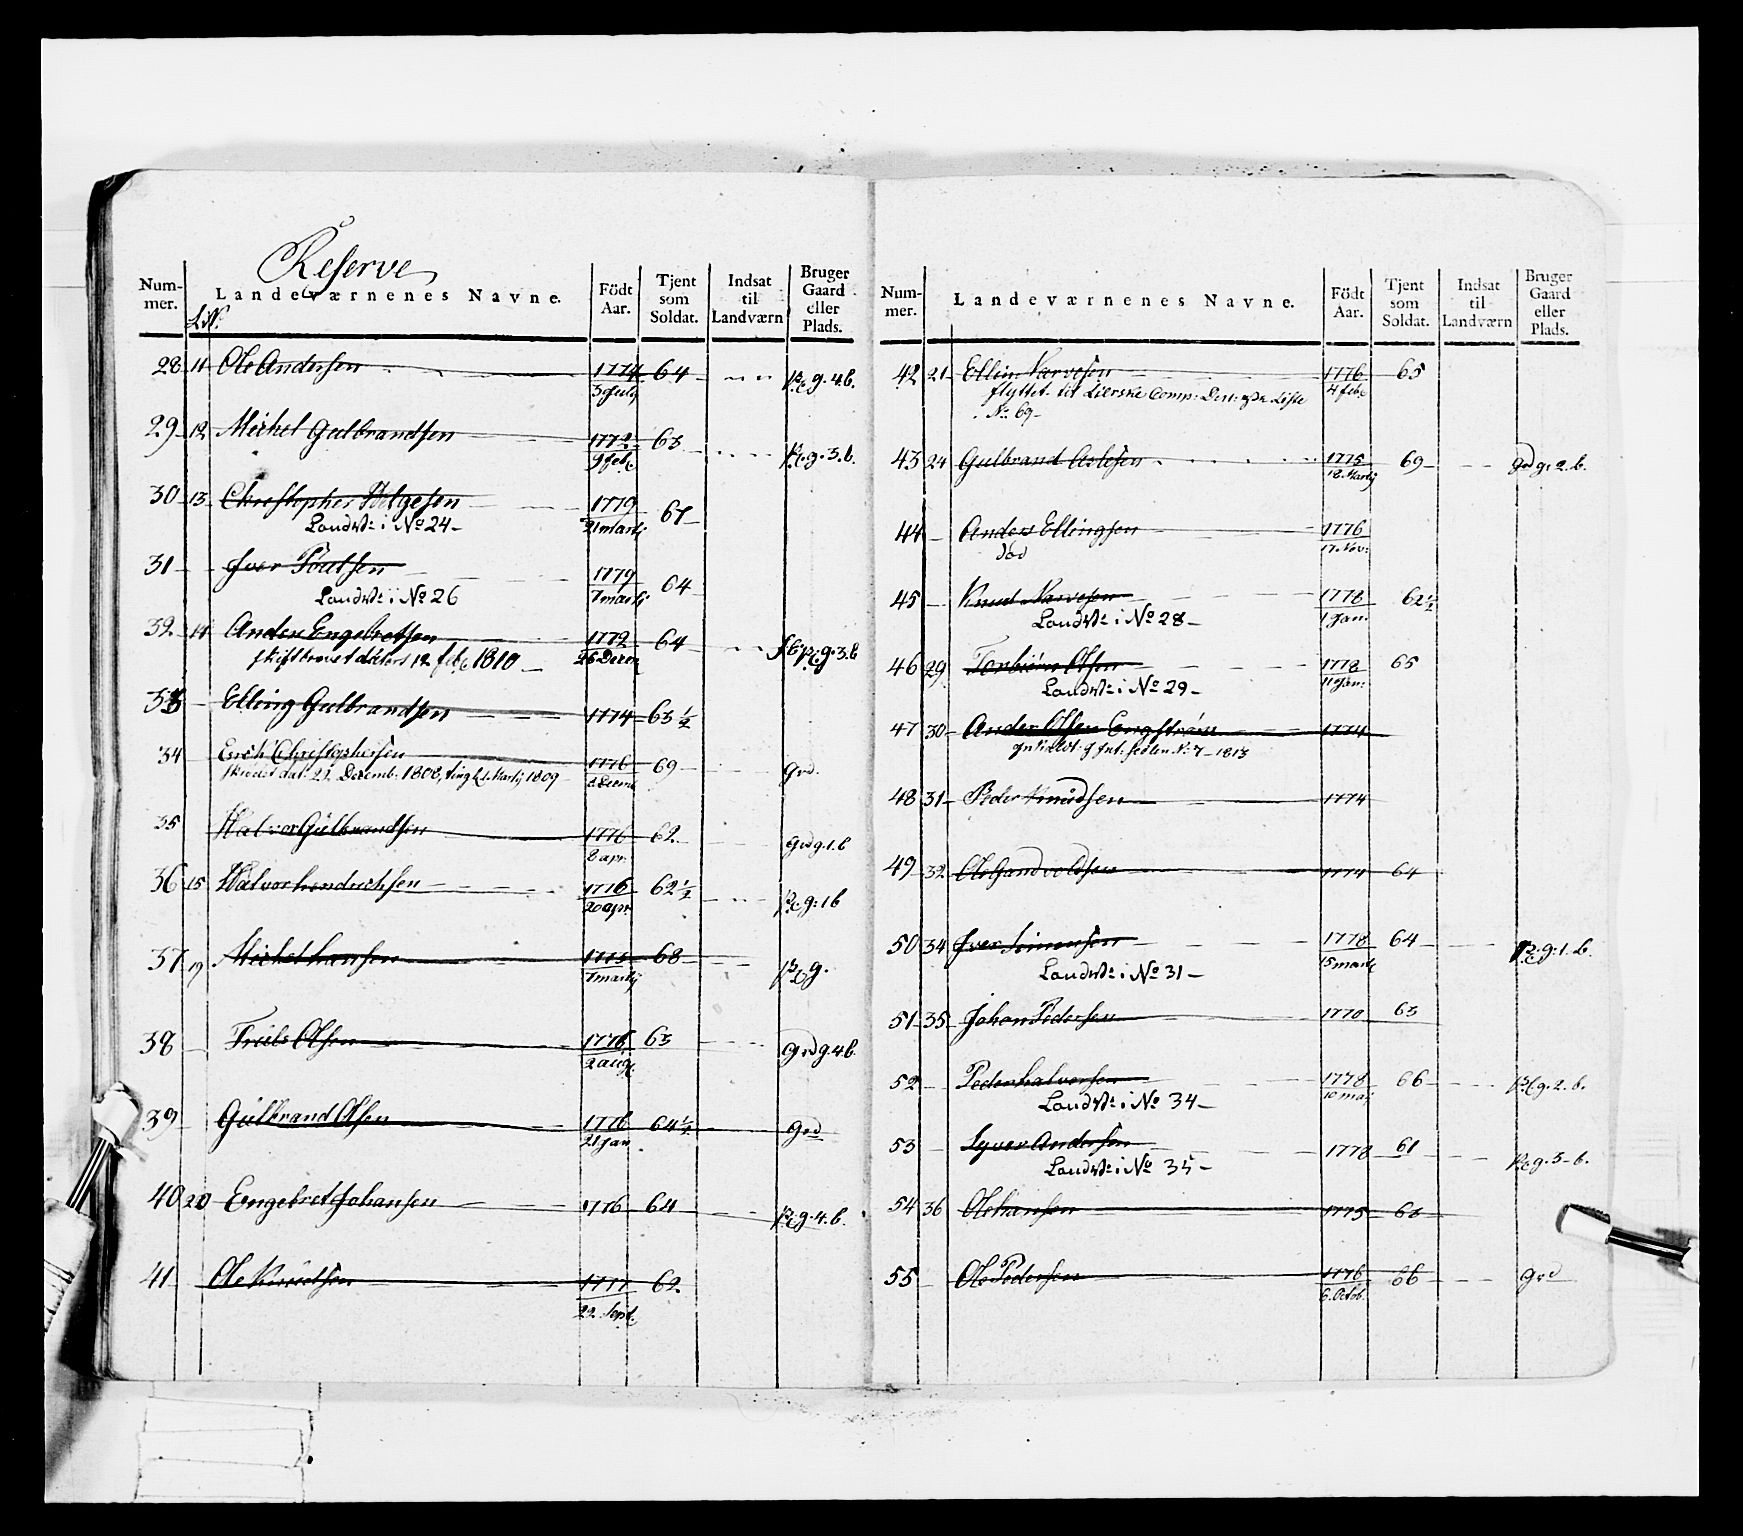 Reserve
Num-
mer.
L. N.
Landeværnenes Navne.
Födt
Aar.
Tjent
som
Soldat.
Indsat
til
Landværn
Bruger
Gaard
eller
Plads.
28 11 Ole Andersen 1774 64 g. 4. b.
5 July
29 12 Michel Gulbrandsen 1772 63 g. 3. b.
9 feb.
30 13 Christopher Helgesen 1779 67
Landv: i No 24 21 martij
31 Iver Poulsen 1779 64
Landv: i No 26 7 martij
32 14 Anders Engebretsen 1772 64 g. 3. b
12 feb. 1810 26 Decem
33 Elling Gulbrandsen 1774 63 1/2
34 Erich Christophersen 1776 69 grd.
dat: 21. Decemb: 1808, Martij 1809
35 Halvor Gulbrandsen 1776 62 grd g. 1. b
8 apr.
36 15 Halvor hendrichsen 1776 62 1/2 g: 1 b
20 apr.
37 19 Michel hansen 1775 68 g.
7 martij
38 Truls Olsen 1776 63 grd g. 4 b.
2 aug.
39 Gulbrand Olsen 1776 64 1/2 grd
21 jan
40 20 Engebret Johansen 1776 64 g. 4. b.
41 Ole Knudsen 1777 62
29. Sept.
Num-
mer.
Landeværnenes Navne.
Födt
Aar.
Tjent
som
Soldat.
Indsat
til
Landværn
Bruger
Gaard
eller
Plads.
42 21 Elling Narvesen 1776 65
flyttet til Lierske Comp: Liste 4 feb.
No 69
43 24 Gulbrand Aslesen 1775 69 grd g. 2. b.
18. Martij
44 Anders Ellingsen 1776
død 17 Nov:
45 Knud Narvesen 1778 62 1/2
Landv: i No 28 1 Jan:
46 29 Torbiørn Olsen 1778 65
Landv: i No 29 11 Jan:
47 30 Anders Olsen Engstrøm 1774
No 7 1813
48 31 Peder Knudsen 1774
49 32 Ole Gandvoldsen 1774 64
50 34 Iver Simensen 1778 64 g: 1. b.
Landv: i No 31 15 marti
51 35 Johan Pedersen 1770 63
52 Peder halvorsen 1778 66 g. 2. b.
Landv: i No 34 10 maj
53 Syver Andersen 1778 61 g. 5 b.
Landv: i No 35
54 36 Ole hansen 1775 63
55 Ole Pedersen 1776 66 grd
6. Octob.